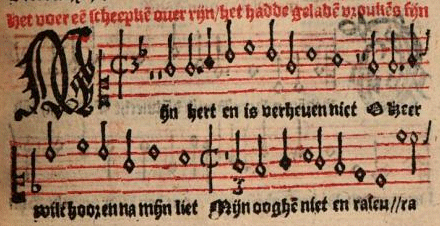 Het voer eē scheepkē ouer rijn/het hadde geladē vroukēs fijn
Mijn hert en is verheuen niet O heer
wilt hooren na mijn liet Mijn ooghē niet en rasen//ra